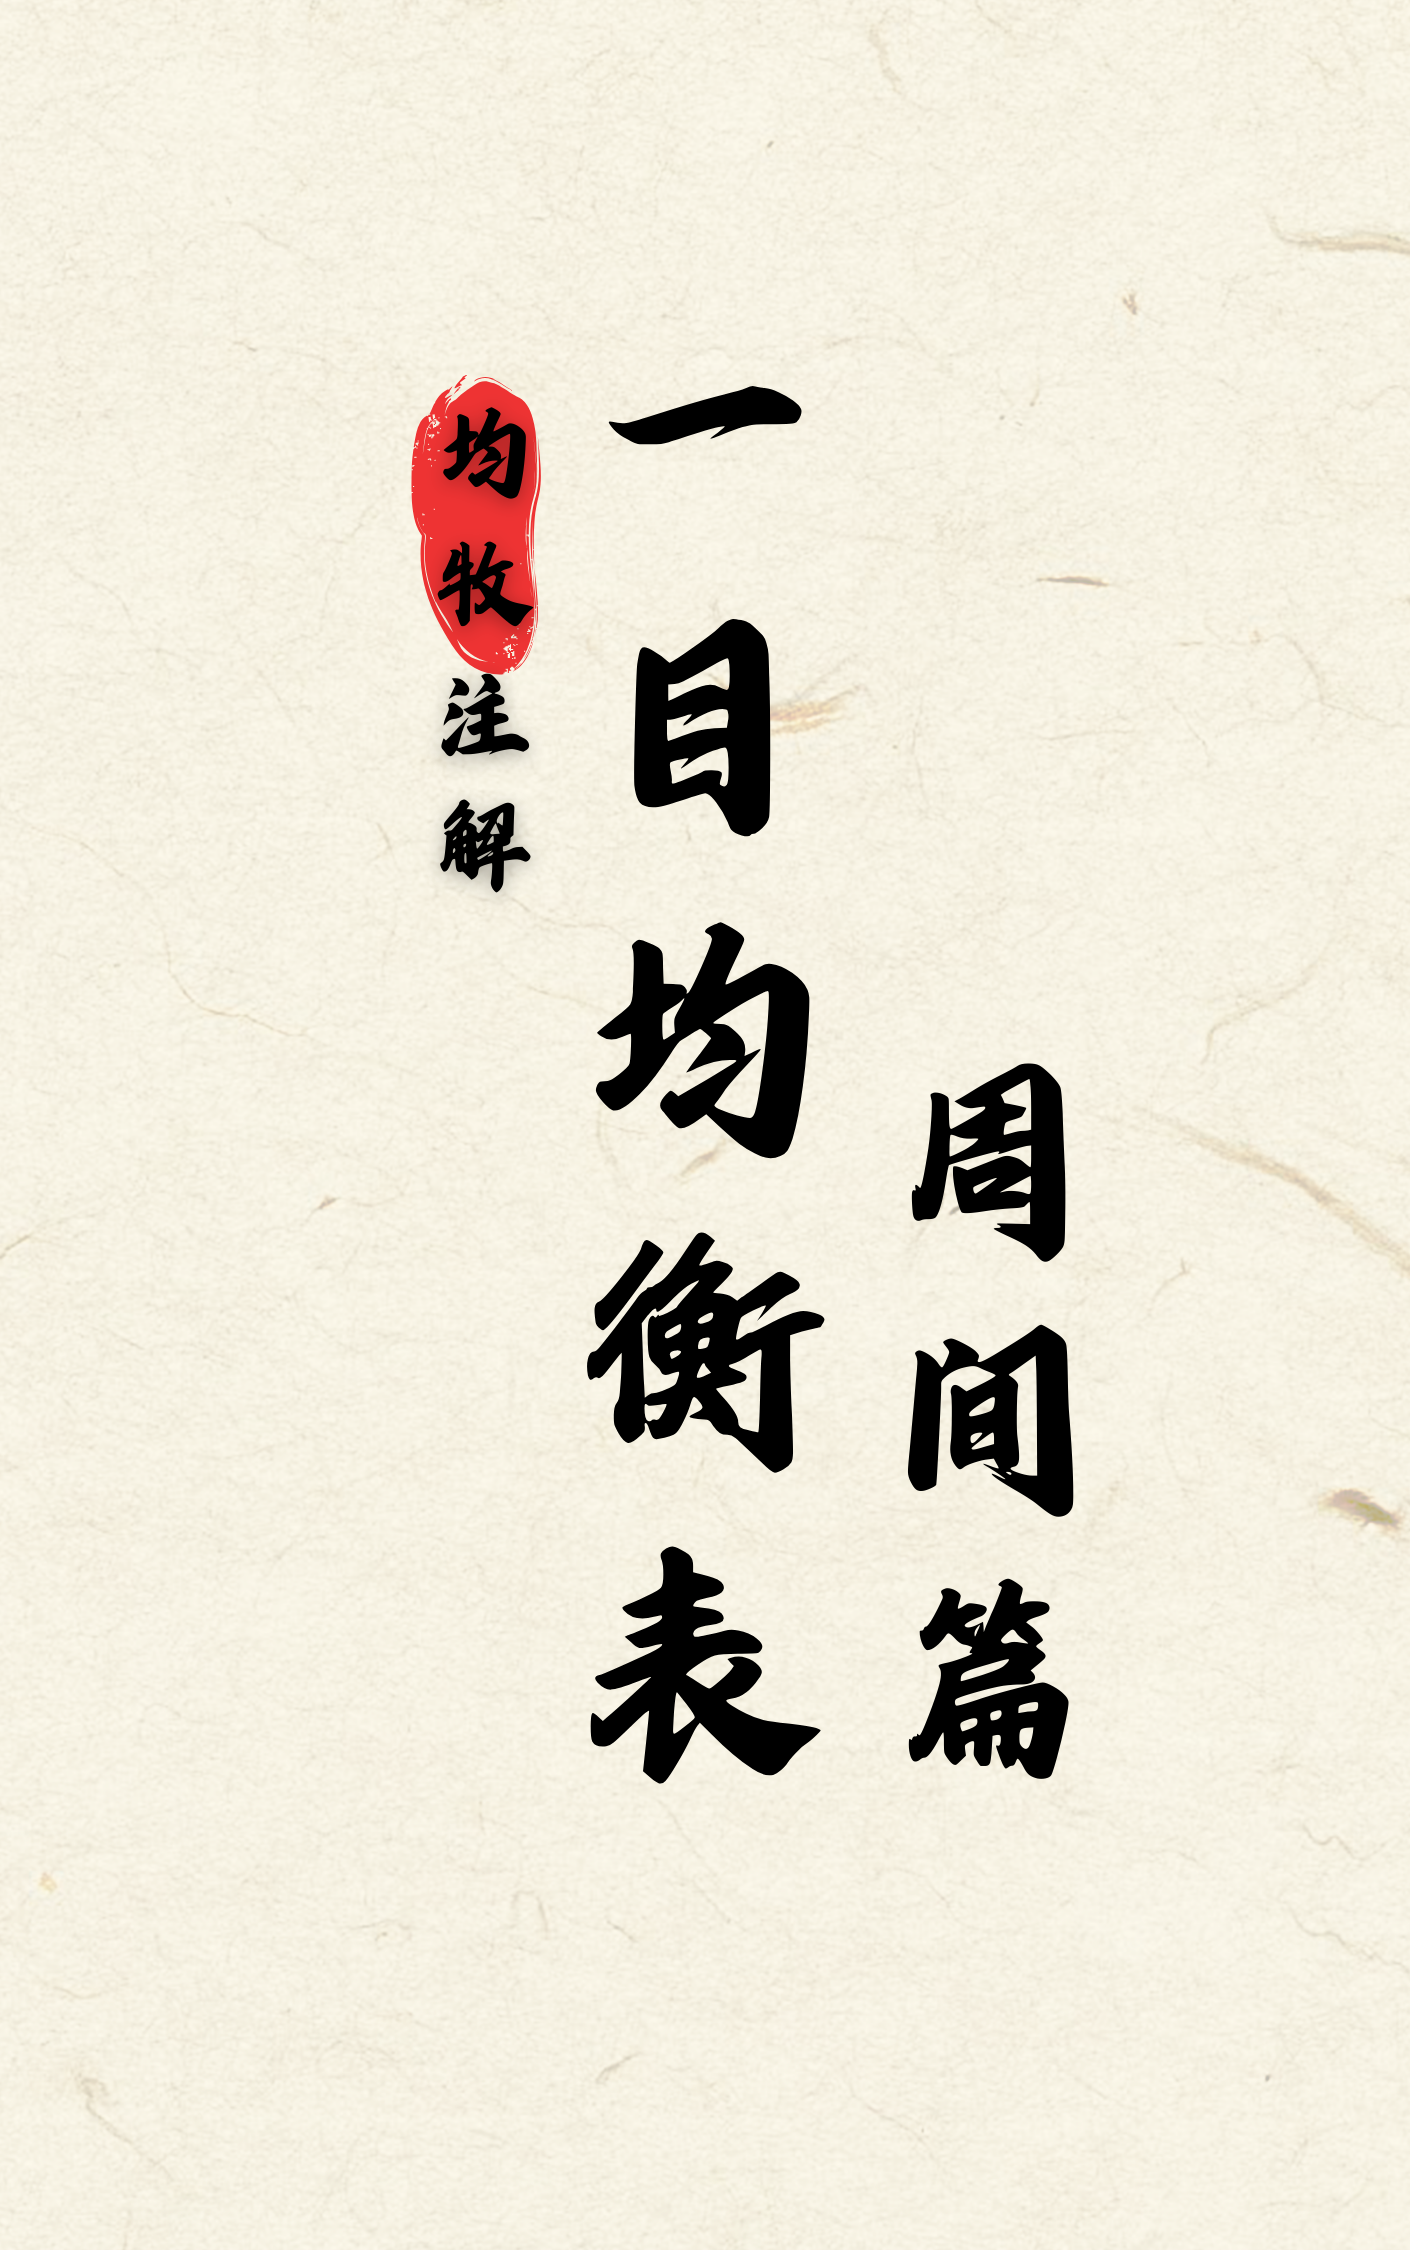 周间篇
一目均衡表
均牧注解